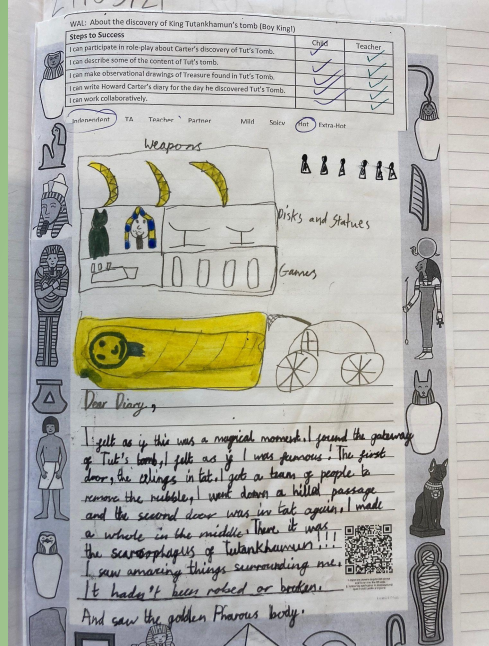 WAL: About the discovery of King Tutankhamun's tomb (Boy King!)
Steps to Success Child Teacher
I can participate in role-play about Carter's discovery of Tut's Tomb.
I can describe some of the content of Tut's tomb.
I can make observational drawings of Treasure found in Tut's Tomb.
I can write Howard Carter's diary for the day he discovered Tut's Tomb.
I can work collaboratively.
Independent TA Teacher Partner Mild Spicy Hot Extra-Hot
Weapons
Disks and Statues
Games
Dear Diary,
I felt as if this was a magical moment. I found the gateway
of Tut's tomb, I felt as if I was famous! The first
door, the celings in tat, I got a team of people to
remove the rubble, I went down a hilled passage
and the second door was in tat again, I made
a whole in the middle. There it was
the scarsophagus of Tutankhamun!!!
I saw amazing things surrounding me.
It hades't been robed or broken.
And saw the golden Pharous body.